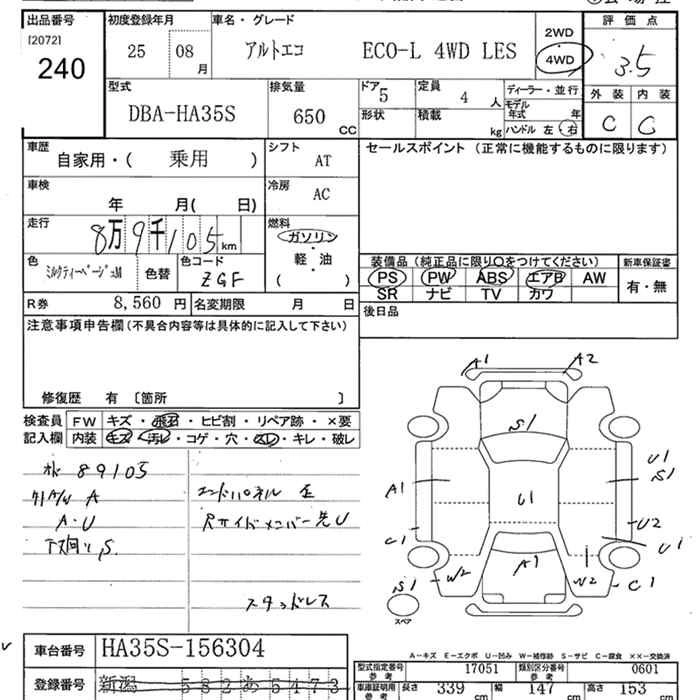 出品番号 初度登録年月 車名・グレード 評価点
[2072]
240
25 08 月
アルトエコ ECO-L 4WD LES
2WD
4WD
3.5
型式 DBA-HA35S
排気量 650 CC
ドア 5 定員 4 人
形状 積載 kg
ディーラー・並行
モデル年式 年
ハンドル 左 右
外装 内装
C C
車歴 自家用・( 乗用 )
シフト AT
セールスポイント (正常に機能するものに限ります)
車検 年 月( 日)
冷房 AC
走行 8万9千105km
燃料 ガソリン
軽・油
( )
色 ミルクティーベージュM 色替 色コード ZGF
装備品(純正品に限り○をつけてください) 新車保証書
PS PW ABS エアB AW 有・無
SR ナビ TV カワ
R券 8,560 円 名変期限 月 日
後日品
注意事項申告欄(不具合内容等は具体的に記入して下さい)
修復歴 有 〔箇所 〕
検査員 FW キズ・飛石・ヒビ割・リペア跡・×要
記入欄 内装 キズ・汚レ・コゲ・穴・スレ・キレ・破レ
89105
A
A・U
下廻り S.
エンドパネル 歪
Rサイドメンバー先U
スタッドレス
A1 A2
S1
A1 U1 U1 S1
C1 U2
U1
A1
S1 W2 W2 C1
スペア
車台番号 HA35S-156304
A-キズ E-エクボ U-凹み W-補修跡 S-サビ C-腐食 ××-交換済
登録番号 新潟 582 あ 5473
型式指定番号 参考 17051 類別区分番号 参考 0601
車庫証明用 参考 長さ 339 cm 幅 147 cm 高さ 153 cm